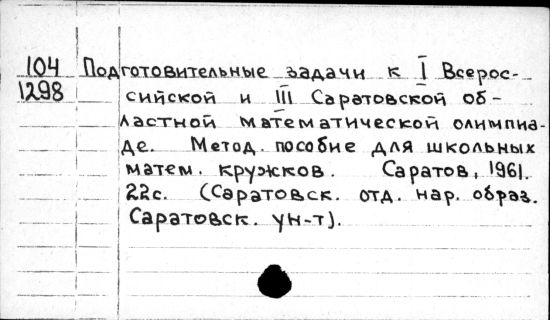 104 Подготовительные задачи к I Всерос-
1298 сийской и III Саратовской об-
ластной математической олимпиа-
де. Метод. пособие для школьных
матем. кружков. Саратов, 1961.
22с. (Саратовск. отд. нар. образ.
Саратовск. ун-т).